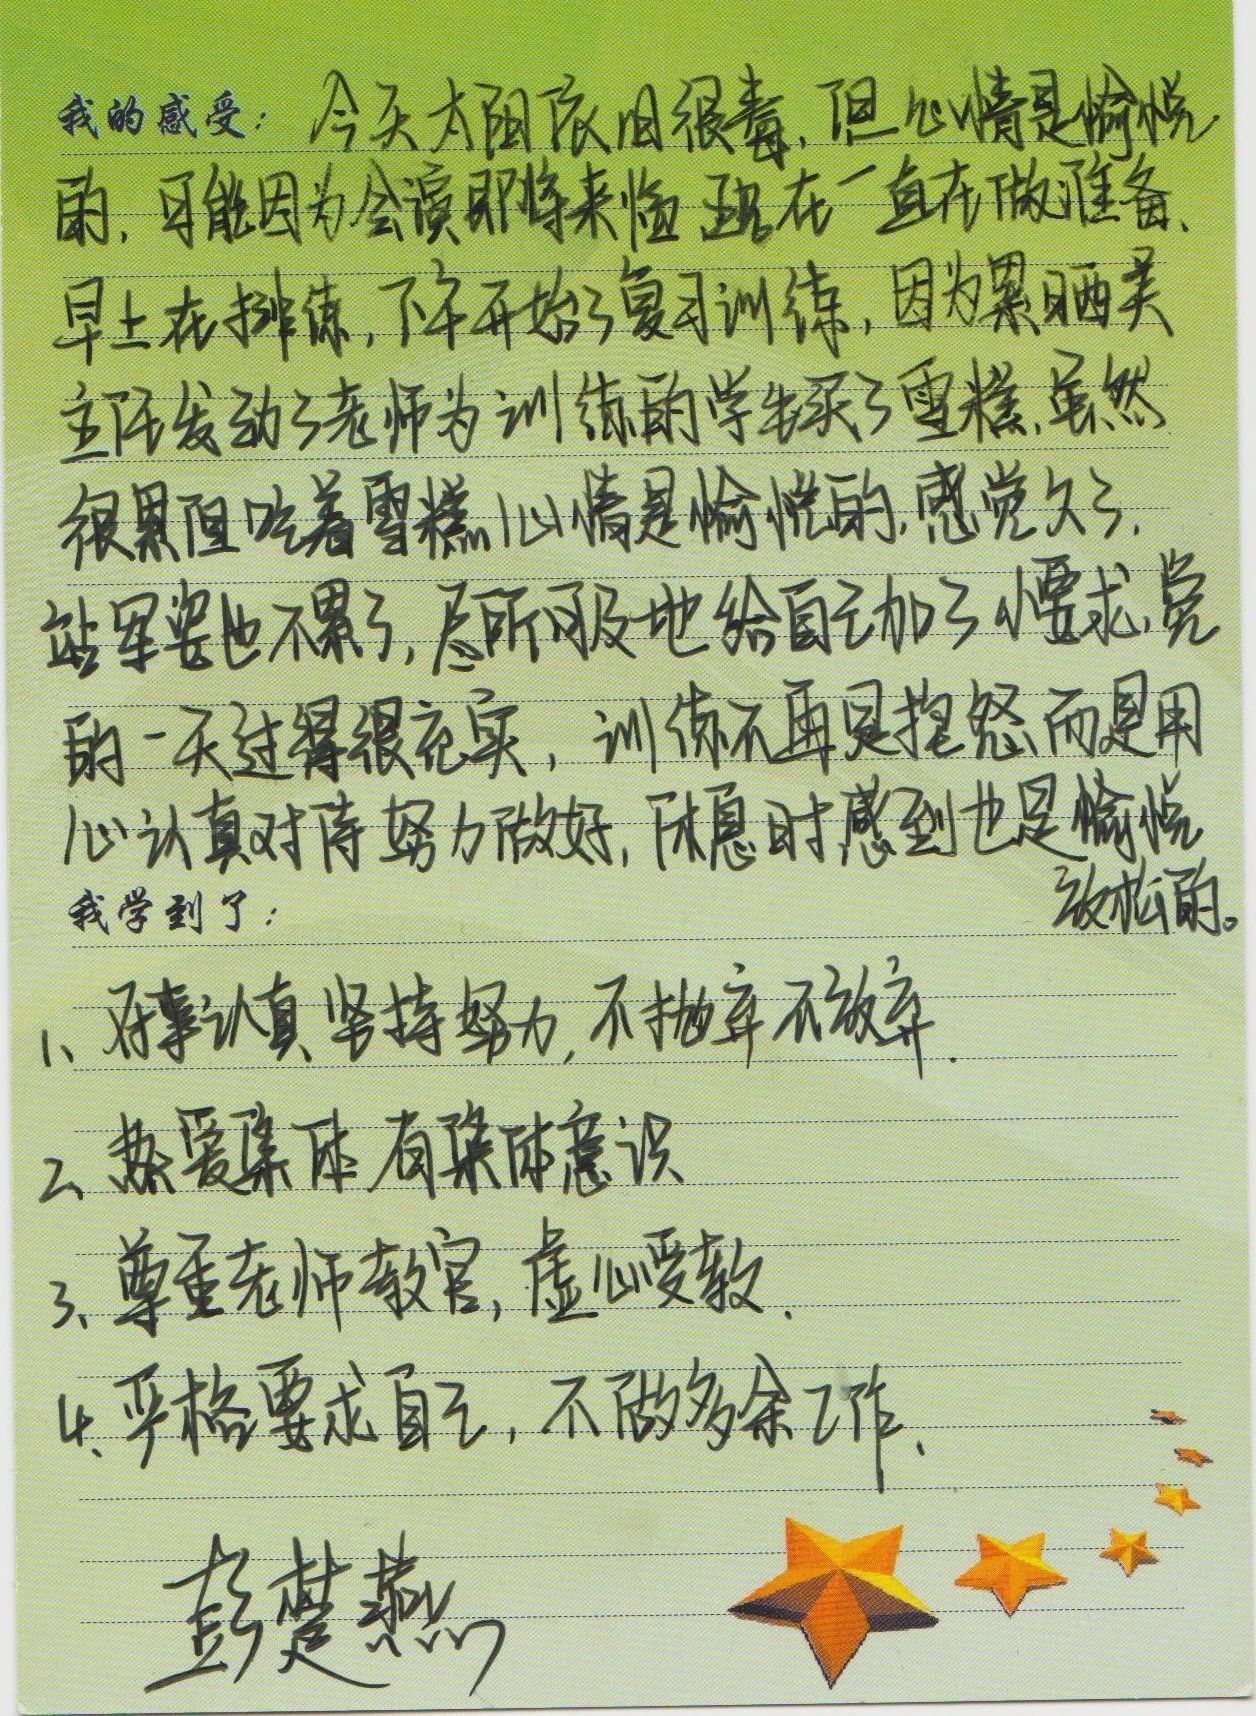 我的感受：今天太阳依旧很毒，但心情是愉悦
的，可能因为会演即将来临 现在一直在做准备、
早上在排练，下午开始了复习训练，因为累晒关
主任发动了老师为训练的学生买了雪糕、虽然
很累但吃着雪糕心情是愉悦的，感觉久了，
站军姿也不累了，尽所可及地给自己加了小要求、觉
的一天过得很充实，训练不再是抱怨而是用
心认真对待努力做好，休息时感到也是愉悦
放松的。
我学到了：
1、对事认真、坚持努力，不抛弃不放弃．
2、热爱集体 有集体意识
3、尊重老师教官，虚心受教．
4、严格要求自己，不做多余工作、
彭楚燕